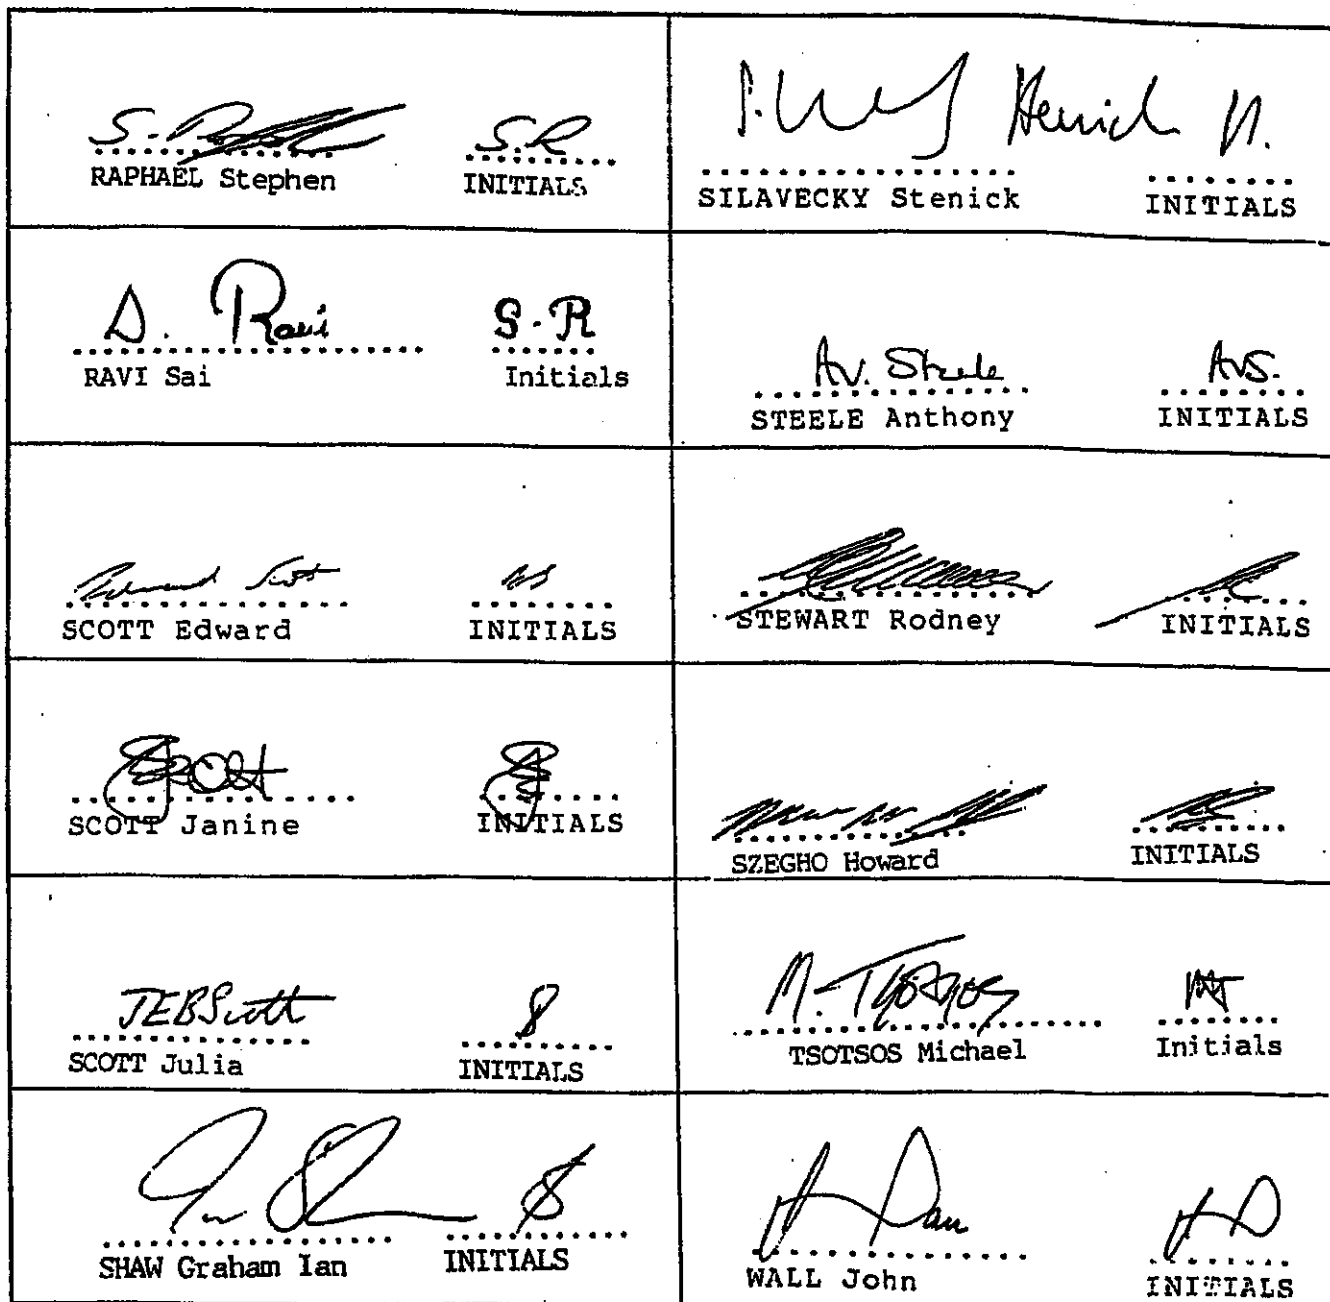 S.R
RAPHAEL Stephen INITIALS
Henrich H.
SILAVECKY Stenick INITIALS
S. Ravi S.R
RAVI Sai Initials
A.V. Steele AVS.
STEELE Anthony INITIALS
Edward Scott
SCOTT Edward INITIALS
STEWART Rodney INITIALS
SCOTT Janine INITIALS
SZEGHO Howard INITIALS
JEBScott
SCOTT Julia INITIALS
M. Tsotsos MT
TSOTSOS Michael Initials
SHAW Graham Ian INITIALS
WALL John INITIALS